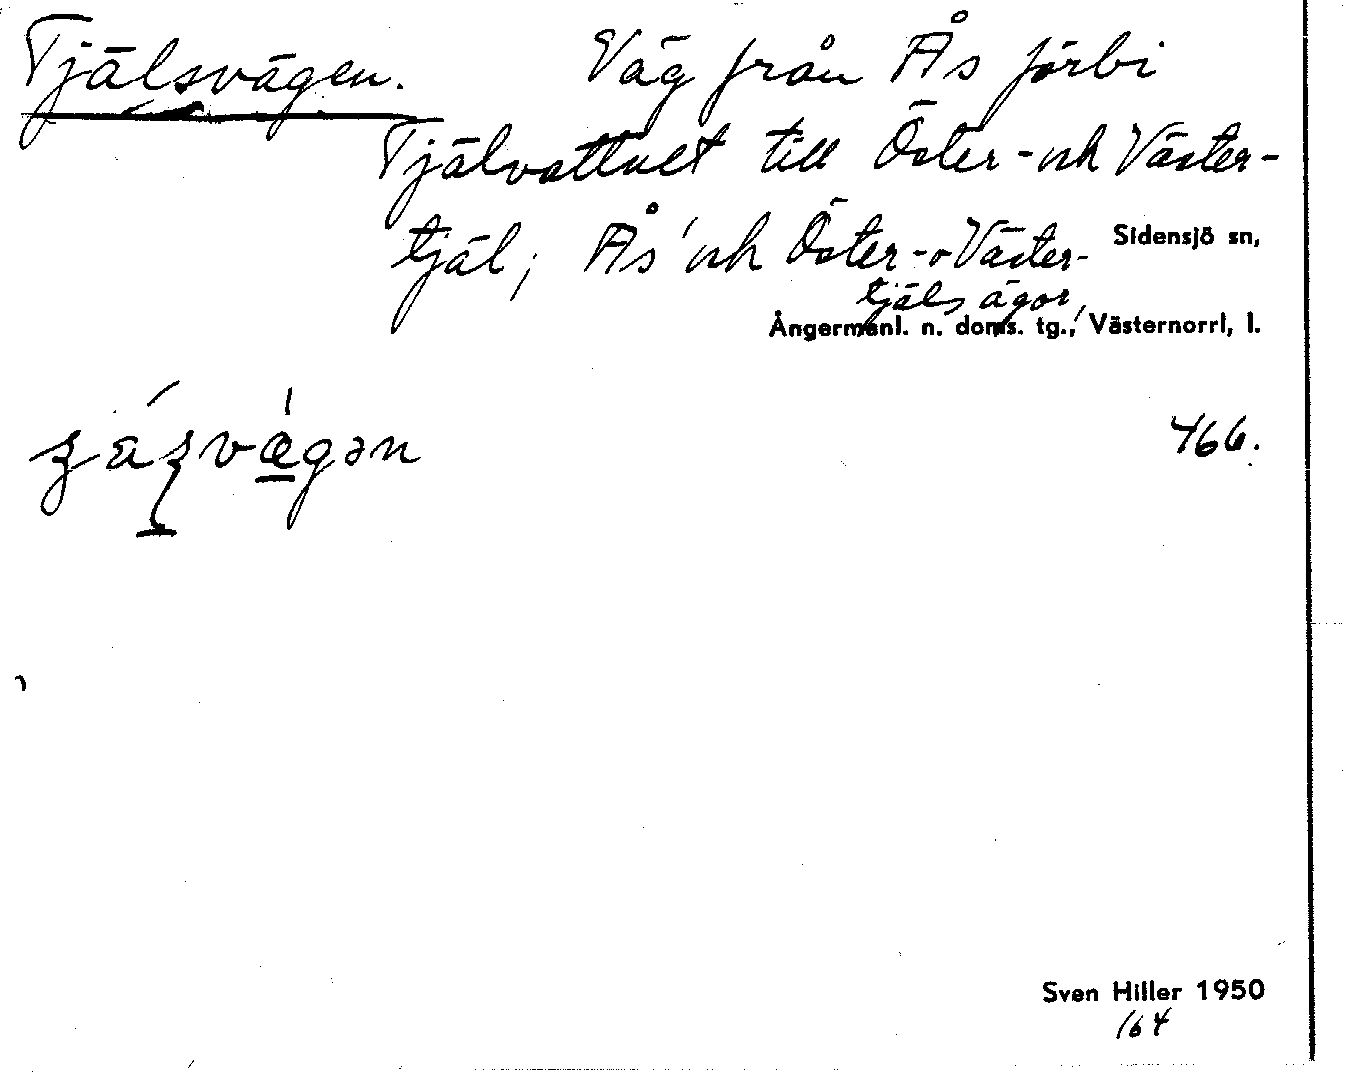 Tjälsvägen. Väg från Ås förbi
Tjälvattnet till Öster- och Väster-
tjäl; Ås' och Öster- o Väster-
tjäls ägor,
Sidensjö sn,
Ångermanl. n. doms. tg., Västernorrl, l.
466.
Sven Hiller 1950
164